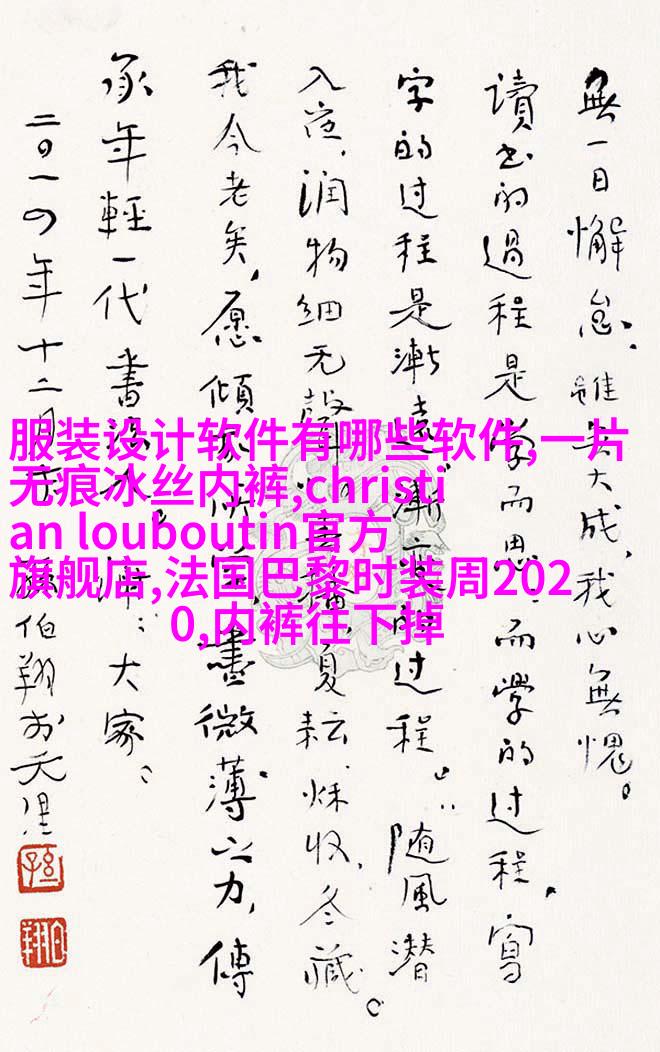 無一日懈怠,雖無大成,我心無愧。
讀书的過程是学而思、而學的过程,寫
字的过程是漸遠漸的过程。随風潜
入夜,润物细无聲。春播、夏耘、秌收、冬藏。
我今老矣,愿傾盡微薄之力,傳
承年輕一代書法大家。
二〇一四年十二月孫伯翔於天津
服装设计软件有哪些软件,一片
无痕冰丝内裤,christi
an louboutin官方
旗舰店,法国巴黎时装周202
0,内裤往下掉